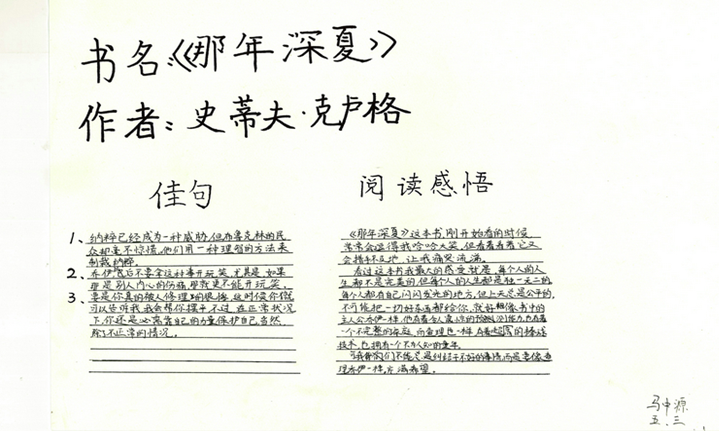 书名:《那年深夏》
作者:史蒂夫·克卢格
佳句
1、纳粹已经成为一种威胁,但布鲁克林的民
众却毫不惊慌,他们用一种理智的方法来
制裁纳粹。
2、乔伊我后不要拿这种事开玩笑,尤其是如果
那是别人内心的伤痛,那就更不能开玩笑。
3、要是你真的被人修理理的很惨,这时候你就
可以告诉我,我会帮你摆平,不过,在正常状况
下,你还是必需靠自己的力量保护自己,当然,
除了不正常的情况。
阅读感悟
《那年深夏》这本书,刚开始看的时候
常常会逗得我哈哈大笑,但看着看着它又
会措手不及地,让我痛哭流涕。
看过这本书我最大的感受就是,每个人的人
生都不是完美的,但每个人的人生都是独一无二的
每个人都有自己闪闪发光的地方,但上天总是公平的,
不可能把一切好东西都给你,就好像,书中的
主人公乔伊一样,他有着令人震惊的预测能力,也有着
一个不完整的家庭,而查理也一样,有着的棒球
技术,也拥有一个不为人知的童年。
我们不能总是纠结于不好的事情,而是要像查
理乔伊一样,充满希望。
马中源
五.三